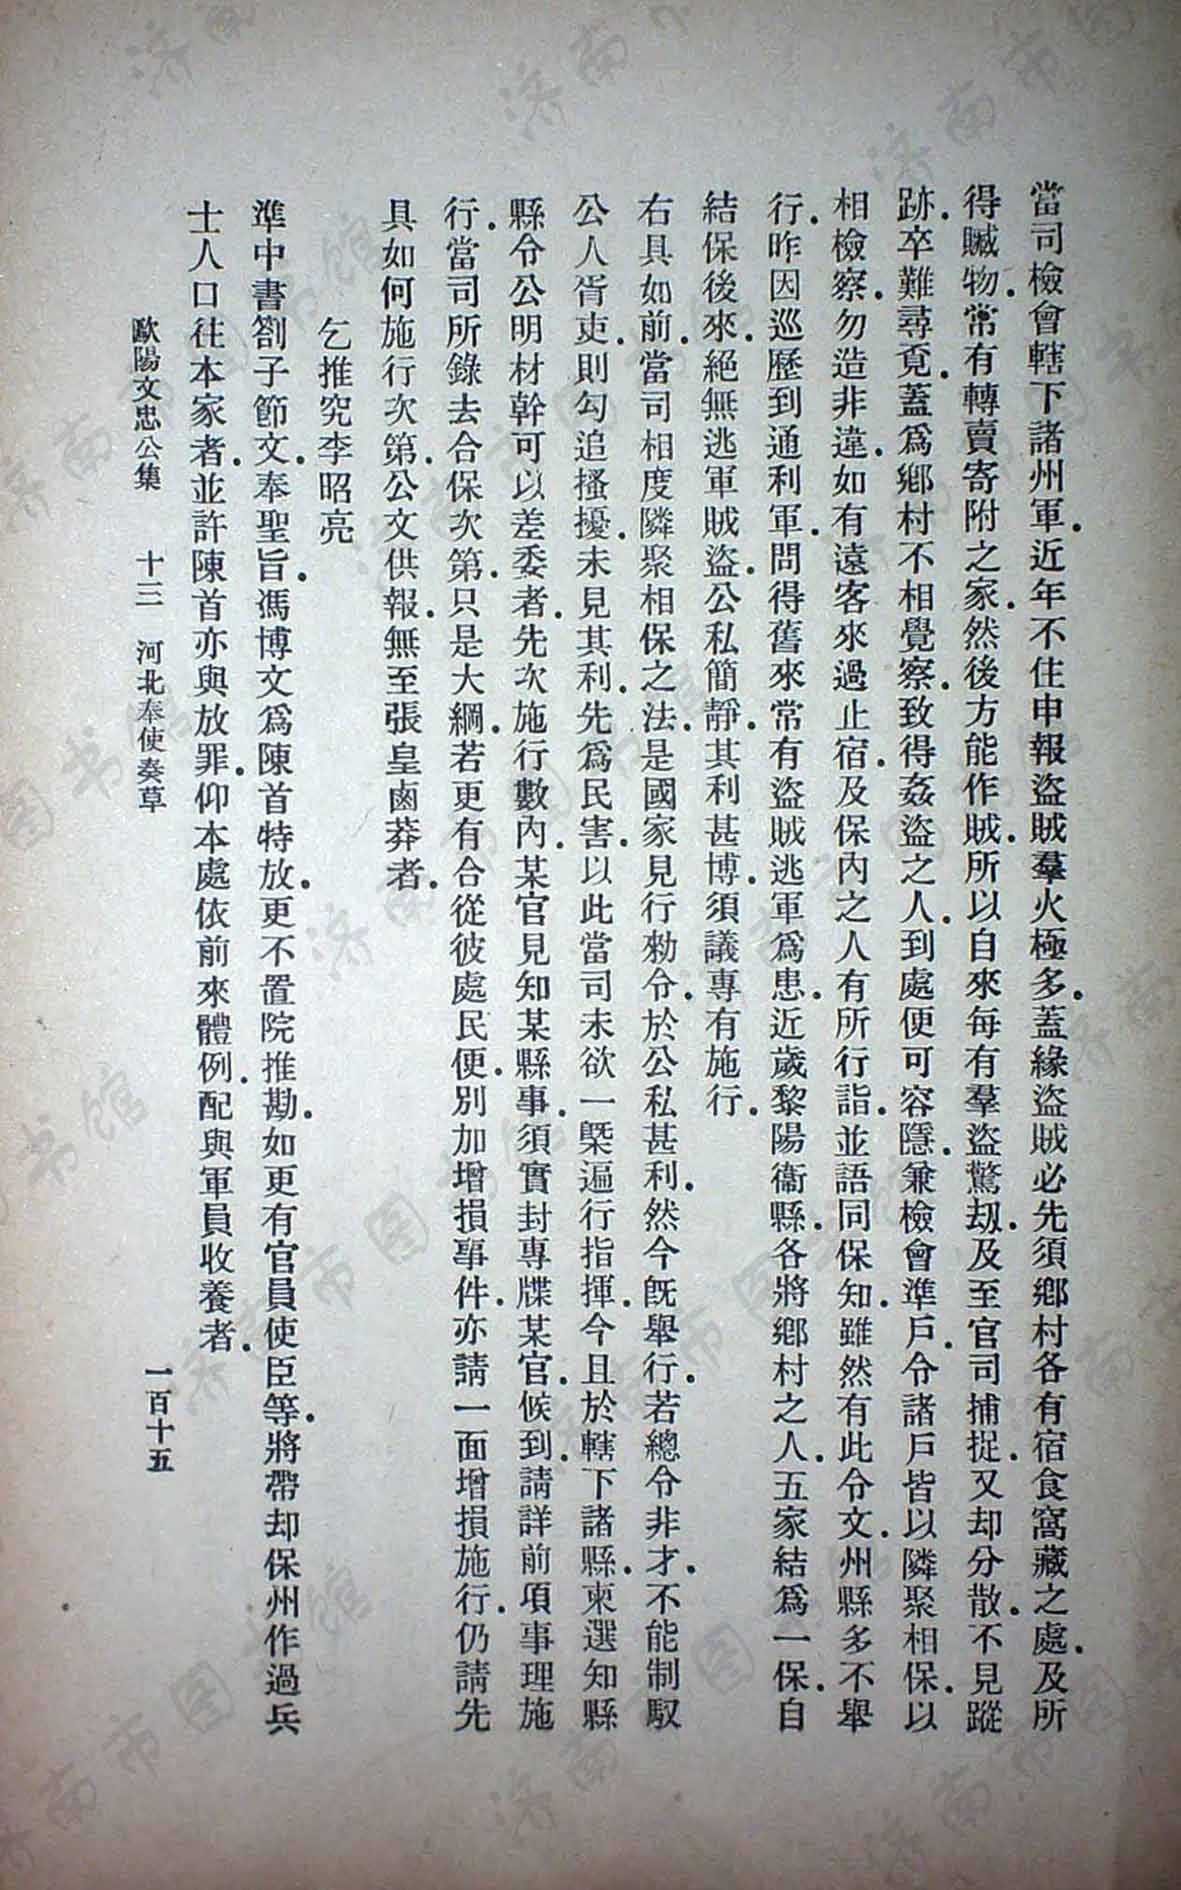 當司檢會轄下諸州軍．近年不住申報盜賊羣火極多．蓋緣盜賊必先須鄉村各有宿食窩藏之處．及所
得贓物．常有轉賣寄附之家．然後方能作賊．所以自來每有羣盜驚刼．及至官司捕捉．又却分散．不見蹤
跡．卒難尋覔．蓋爲鄉村不相覺察．致得姦盜之人．到處便可容隱．兼檢會準戶．令諸戶皆以隣聚相保．以
相檢察．勿造非違．如有遠客來過止宿．及保內之人有所行詣．並語同保知．雖然有此令文．州縣多不舉
行．昨因巡歷到通利軍．問得舊來常有盜賊逃軍爲患．近歲黎陽衞縣．各將鄉村之人．五家結爲一保．自
結保後來．絕無逃軍賊盜．公私簡靜．其利甚博．須議專有施行．
右具如前．當司相度隣聚相保之法．是國家見行勑令．於公私甚利．然今旣舉行．若總令非才．不能制馭
公人胥吏．則勾追搔擾．未見其利．先爲民害．以此當司未欲一槩遍行指揮．今且於轄下諸縣．柬選知縣
縣令公明材幹可以差委者．先次施行數內．某官見知某縣事．須實封專牒某官．候到．請詳前項事理施
行．當司所錄去合保次第．只是大綱．若更有合從彼處民便．別加增損事件．亦請一面增損施行．仍請先
具如何施行次第．公文供報．無至張皇鹵莽者．
乞推究李昭亮
準中書劄子節文．奉聖旨．馮博文爲陳首特放．更不置院推勘．如更有官員使臣等．將帶却保州作過兵
士人口往本家者．並許陳首亦與放罪．仰本處依前來體例．配與軍員收養者．
歐陽文忠公集　十三　河北奉使奏草　一百十五
济南市图书馆